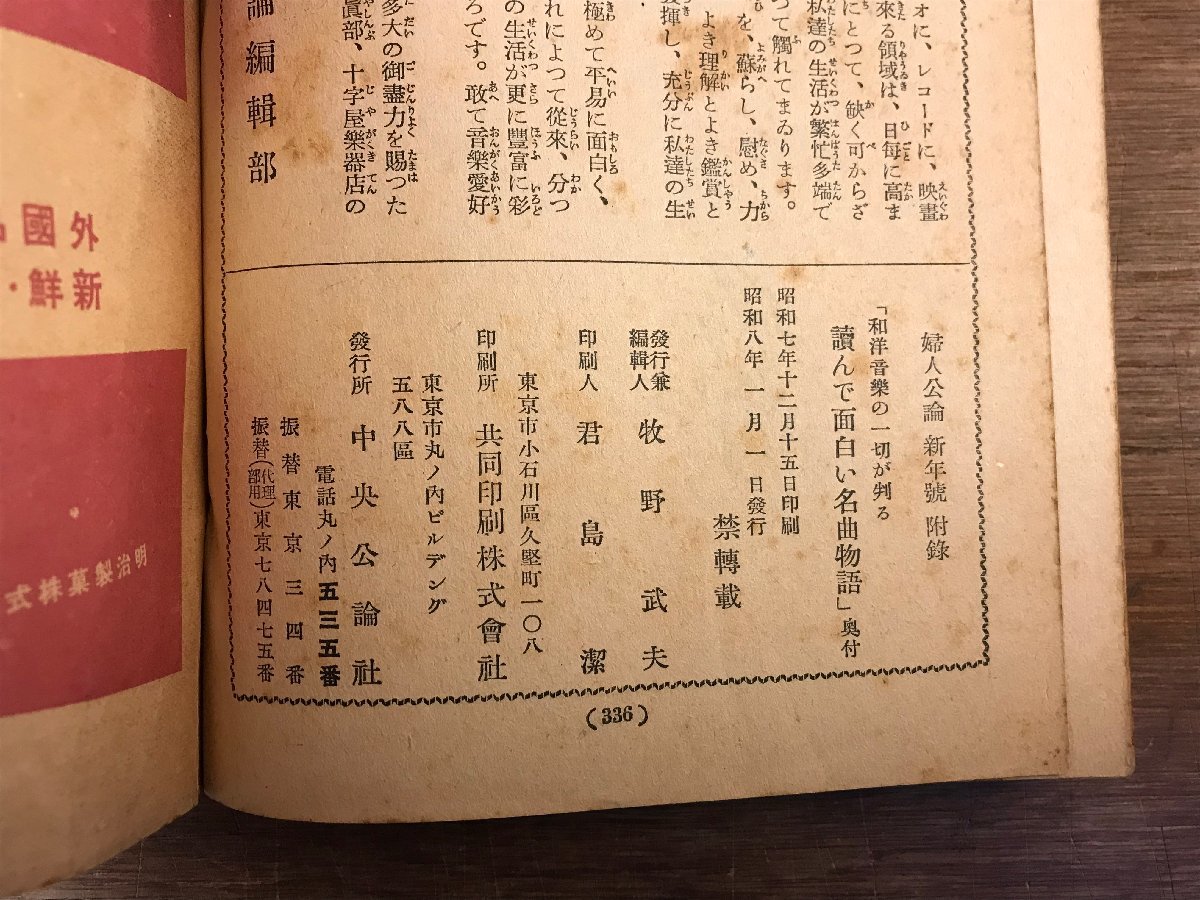 オに、レコードに、映畫
來る領域は、日毎に高ま
にとつて、缺く可からざ
私達の生活が繁忙多端で
つて觸れてまゐります。
を、蘇らし、慰め、力
よき理解とよき鑑賞と
揮し、充分に私達の生
極めて平易に面白く、
れによつて從來、分つ
の生活が更に豐富に彩
ろです。敢て音樂愛好
多大の御盡力を賜つた
眞部、十字屋樂器店の
論編輯部
婦人公論 新年號 附錄
「和洋音樂の一切が判る
讀んで面白い名曲物語」奥付
昭和七年十二月十五日印刷
昭和八年一月一日發行
禁轉載
發行兼
編輯人 牧野武夫
印刷人 君島潔
東京市小石川區久堅町一〇八
印刷所 共同印刷株式會社
東京市丸ノ內ビルデング
五八八區
發行所 中央公論社
電話丸ノ內五三五番
振替東京三四番
振替(代理部用)東京七八四七五番
(336)
外國
新鮮・
明治製菓株式